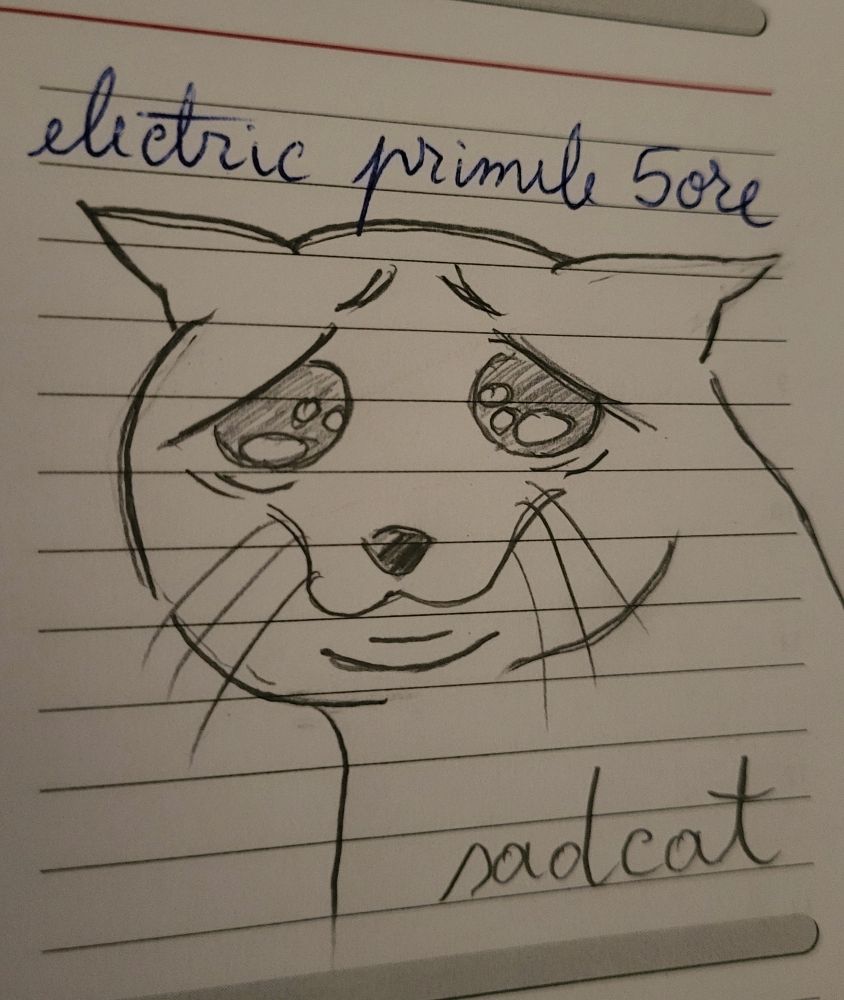 electric primele 5 ore
sadcat